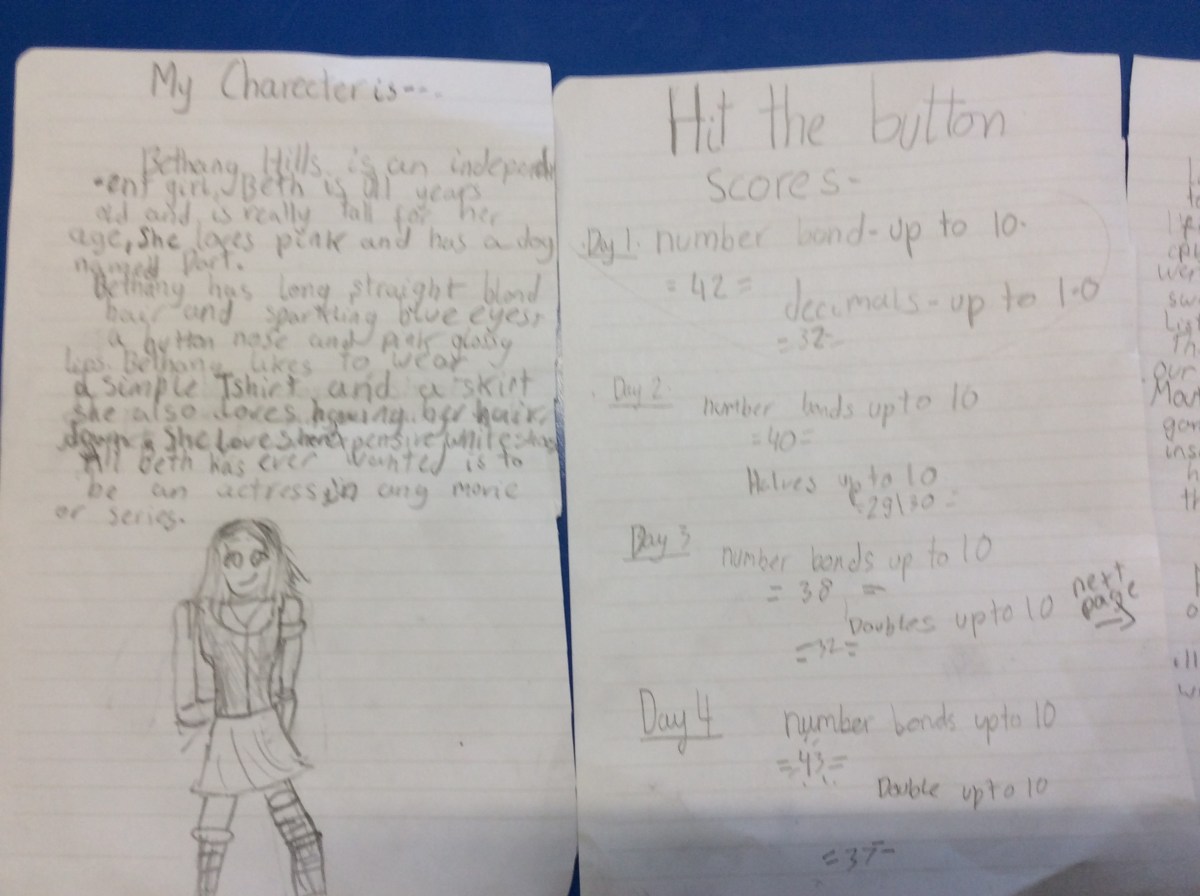 My Charecter is---.
Bethany Hills is an independ
-ent girl, Beth is 11 years
old and is really tall for her
age, She loves pink and has a dog
named
Bethany has long straight blond
hair and sparkling blue eyes,
a button nose and pink glossy
lips. Bethany likes to wear
a simple Tshirt and a skirt
she also loves having her hair
down. She loves her expensive white
All Beth has ever wanted is to
be an actress in any movie
or series.
Hit the button
scores-
Day 1. number bond-up to 10.
= 42 =
decimals-up to 1.0
= 32-
Day 2 number bonds up to 10
=40=
Halves up to 10
=29\30=
Day 3 number bonds up to 10
= 38 =
Doubles upto 10
next
page
=32=
Day 4 number bonds upto 10
=43=
Double upto 10
=37-
our